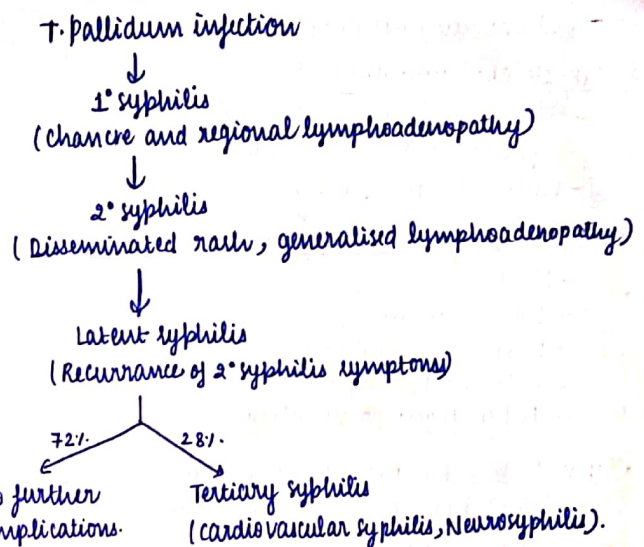 T. pallidum infection
1° syphilis
(Chancre and regional lymphoadenopathy)
2° syphilis
(Disseminated rash, generalised lymphoadenopathy)
Latent syphilis
(Recurrance of 2° syphilis symptons)
72%. 28%.
further Tertiary syphilis
mplications. (cardiovascular syphilis, Neurosyphilis).